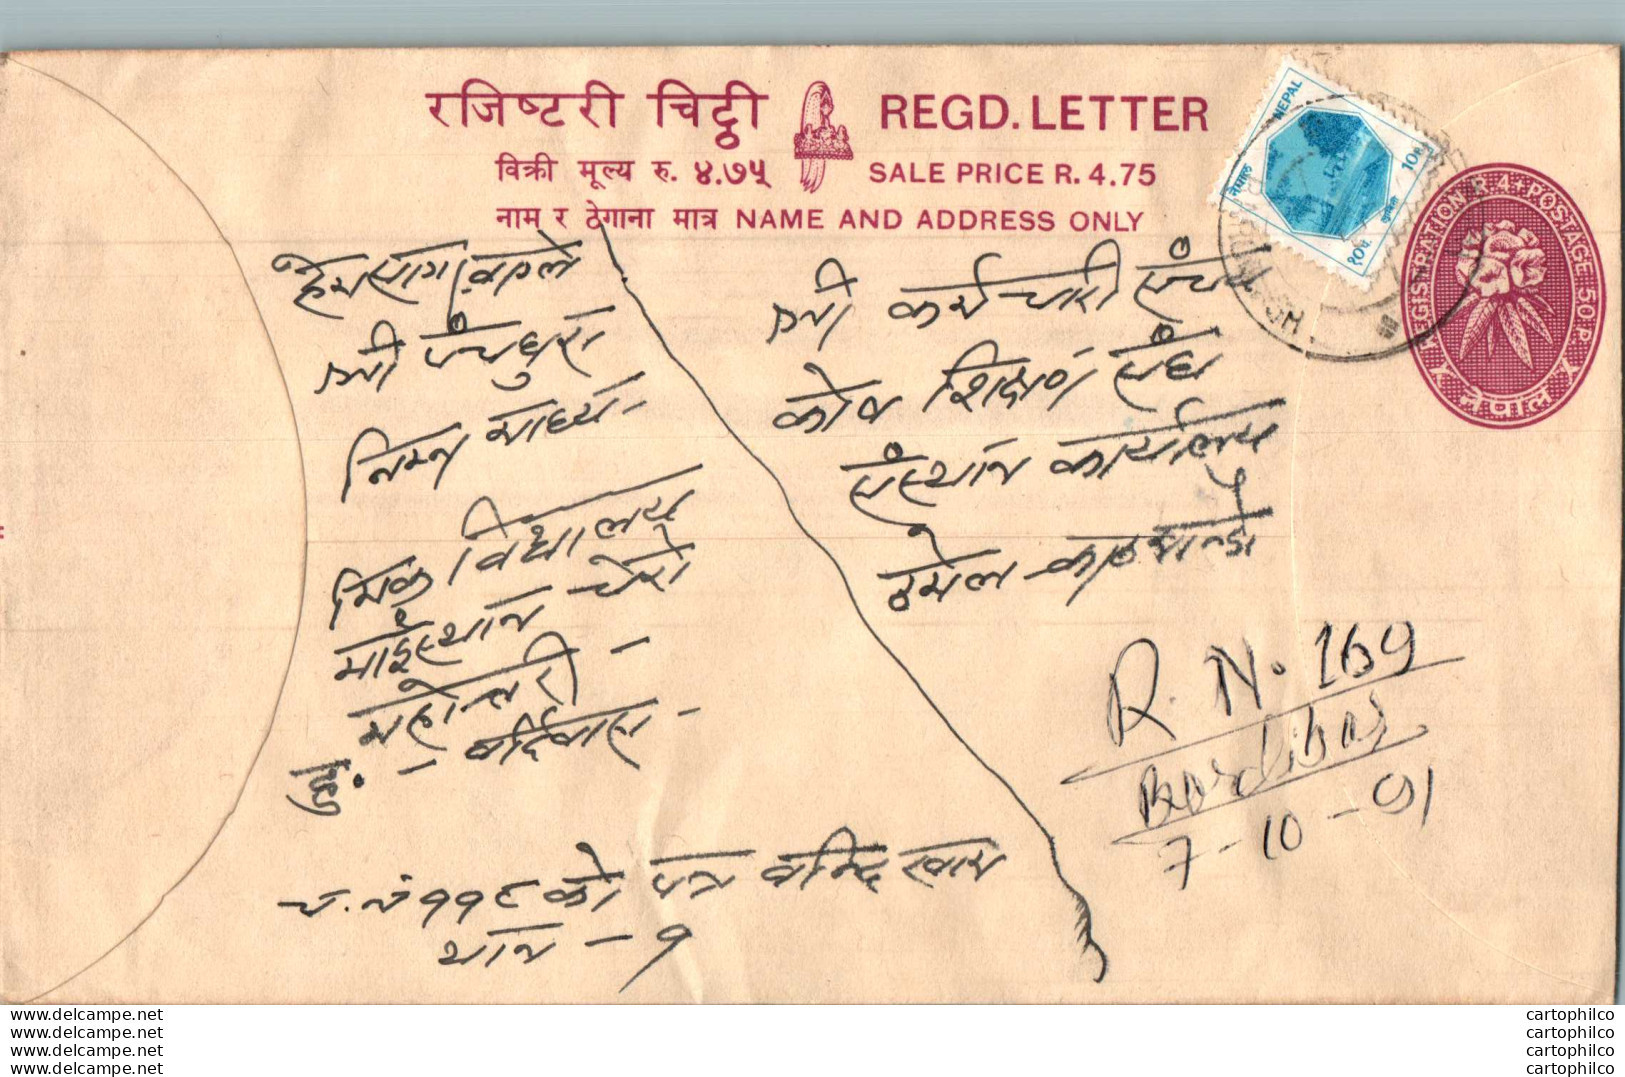 रजिष्टरी चिट्ठी REGD. LETTER
विक्री मूल्य रु. ४.७५ SALE PRICE R. 4.75
नाम र ठेगाना मात्र NAME AND ADDRESS ONLY
NEPAL
नेपाल
10P.
१०पै.
REGISTRATION R. 4 POSTAGE 50 P.
नेपाल
श्री पंचधुरा
निम्न माध्य-
मिक विद्यालय
माईस्थान
महोत्तरी -
हु. - बर्दिवास -
श्री कर्मचारी संचय
कोष शिक्षण संघ
संस्थान कार्यालय
ठमेल काठमाण्डौ
R. N. 169
Bardibas
7-10-91
च. नं ११९ को पत्र बन्दि खाम
थान - १
www.delcampe.net
www.delcampe.net
www.delcampe.net
www.delcampe.net
cartophilco
cartophilco
cartophilco
cartophilco